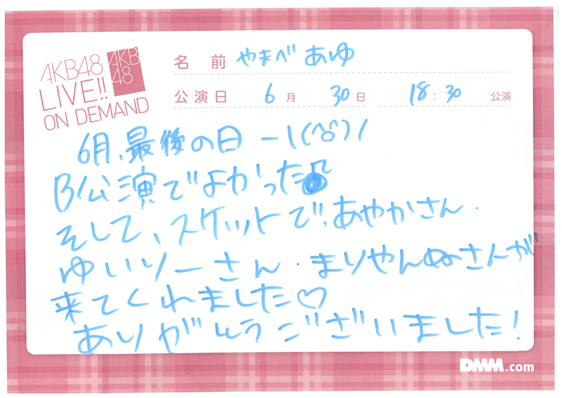 AKB48
LIVE!!
ON DEMAND
AKB
48
名 前 やまべ あゆ
公演日 6月 30日 18:30 公演
6月、最後の日 ー\(^o^)/
B公演でよかった♪
そして、スケットで、あやかさん・
ゆいりーさん・まりやんぬさんが
来てくれました♡
ありがとうございました!
DMM.com